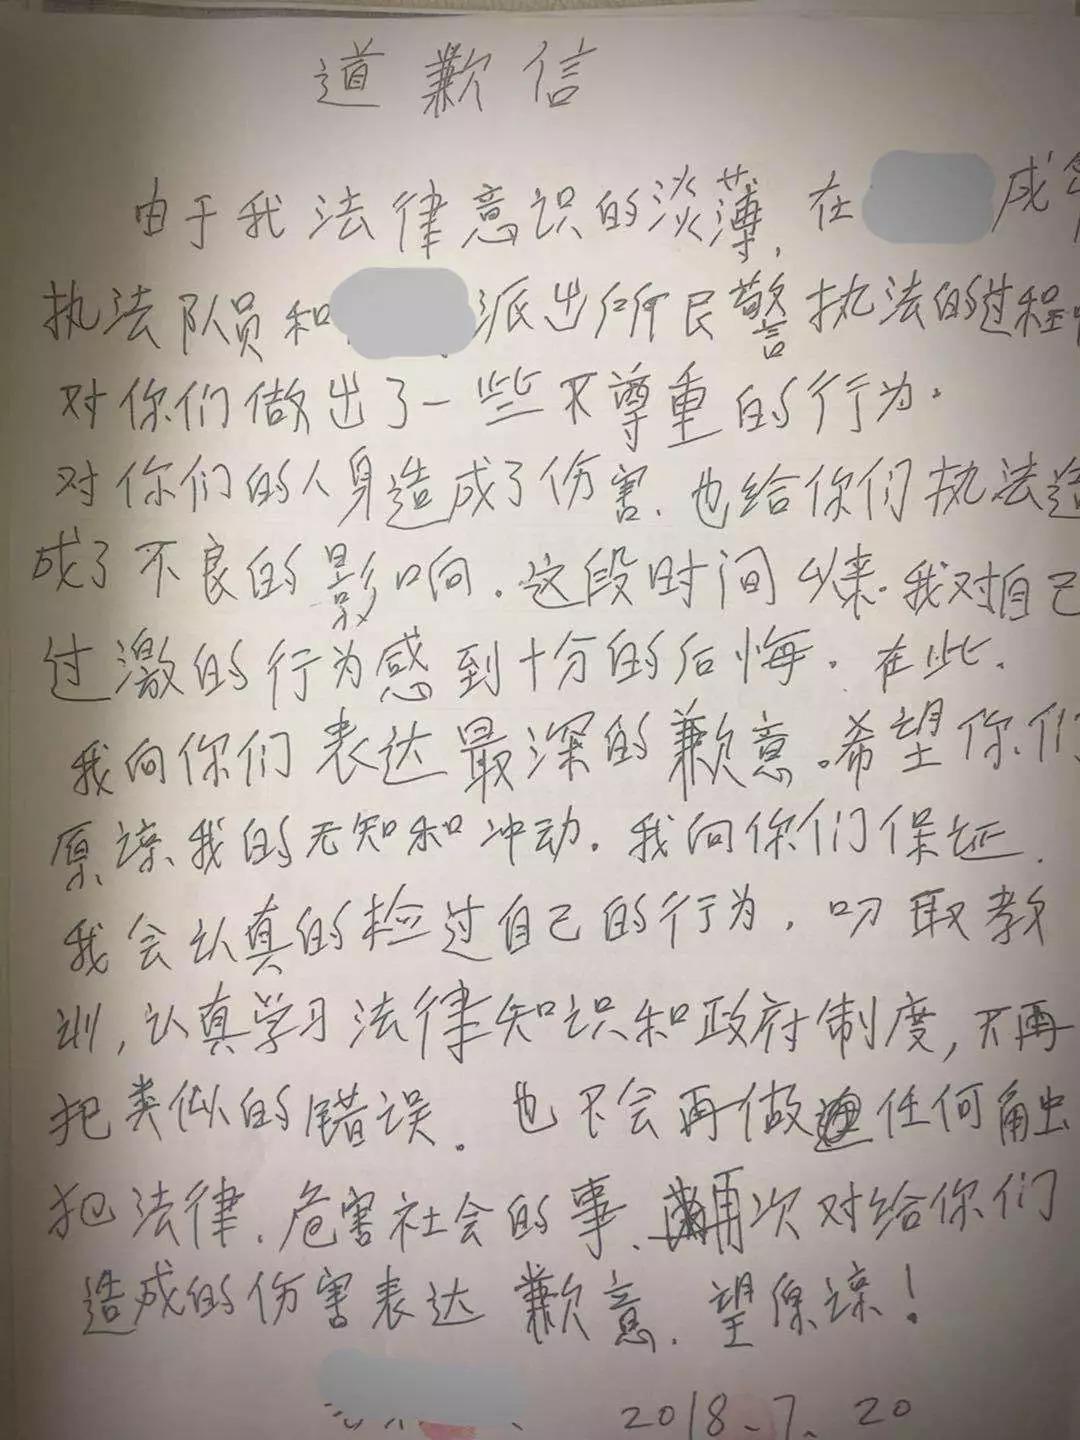 道歉信
由于我法律意识的淡薄,在 成
执法队员和 派出所民警执法的过程中
对你们做出了一些不尊重的行为.
对你们的人身造成了伤害.也给你们执法造
成了不良的影响.这段时间以来.我对自己
过激的行为感到十分的后悔.在此.
我向你们表达最深的歉意。希望你们
原谅我的无知和冲动.我向你们保证.
我会认真的检过自己的行为,叨取教
训,认真学习法律知识和政府制度,不再
把类似的错误.也不会再做任何触
犯法律.危害社会的事.再次对给你们
造成的伤害表达歉意.望原谅!
2018.7.20